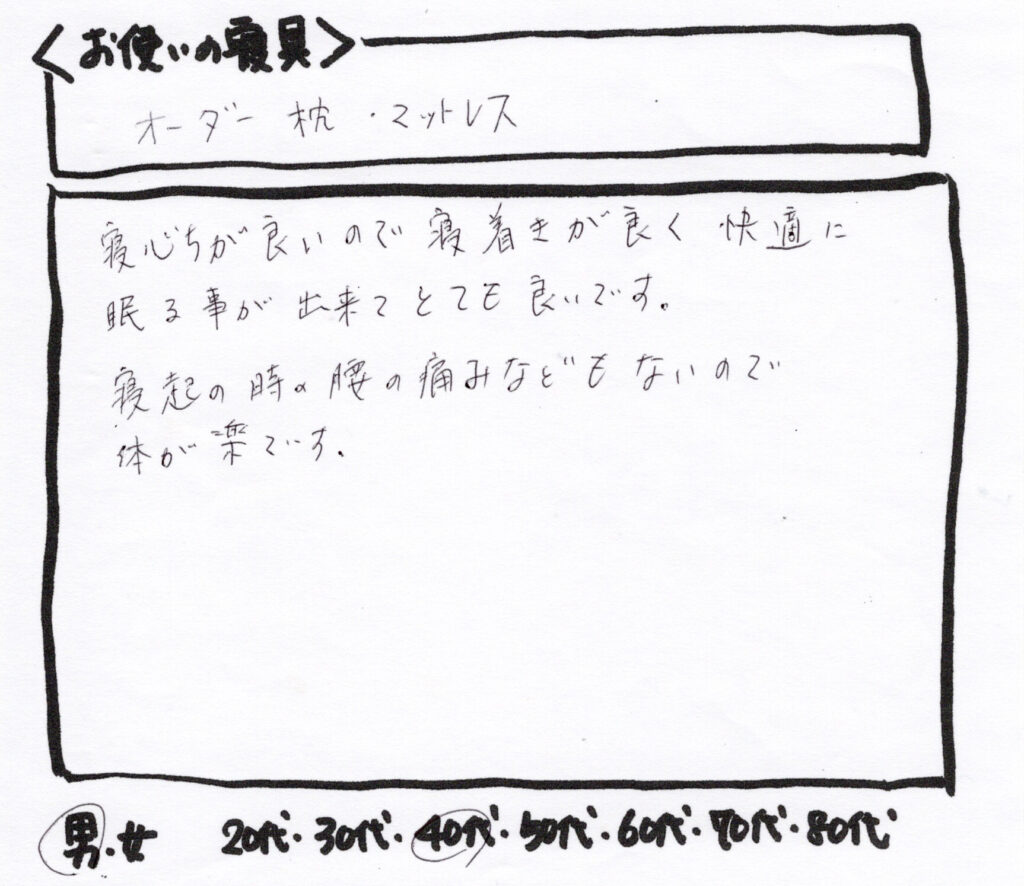 〈お使いの寝具〉
オーダー枕・マットレス
寝心ちが良いので寝着きが良く快適に
眠る事が出来てとても良いです。
寝起の時の腰の痛みなどもないので
体が楽です.
男・女 20代・30代・40代・50代・60代・70代・80代